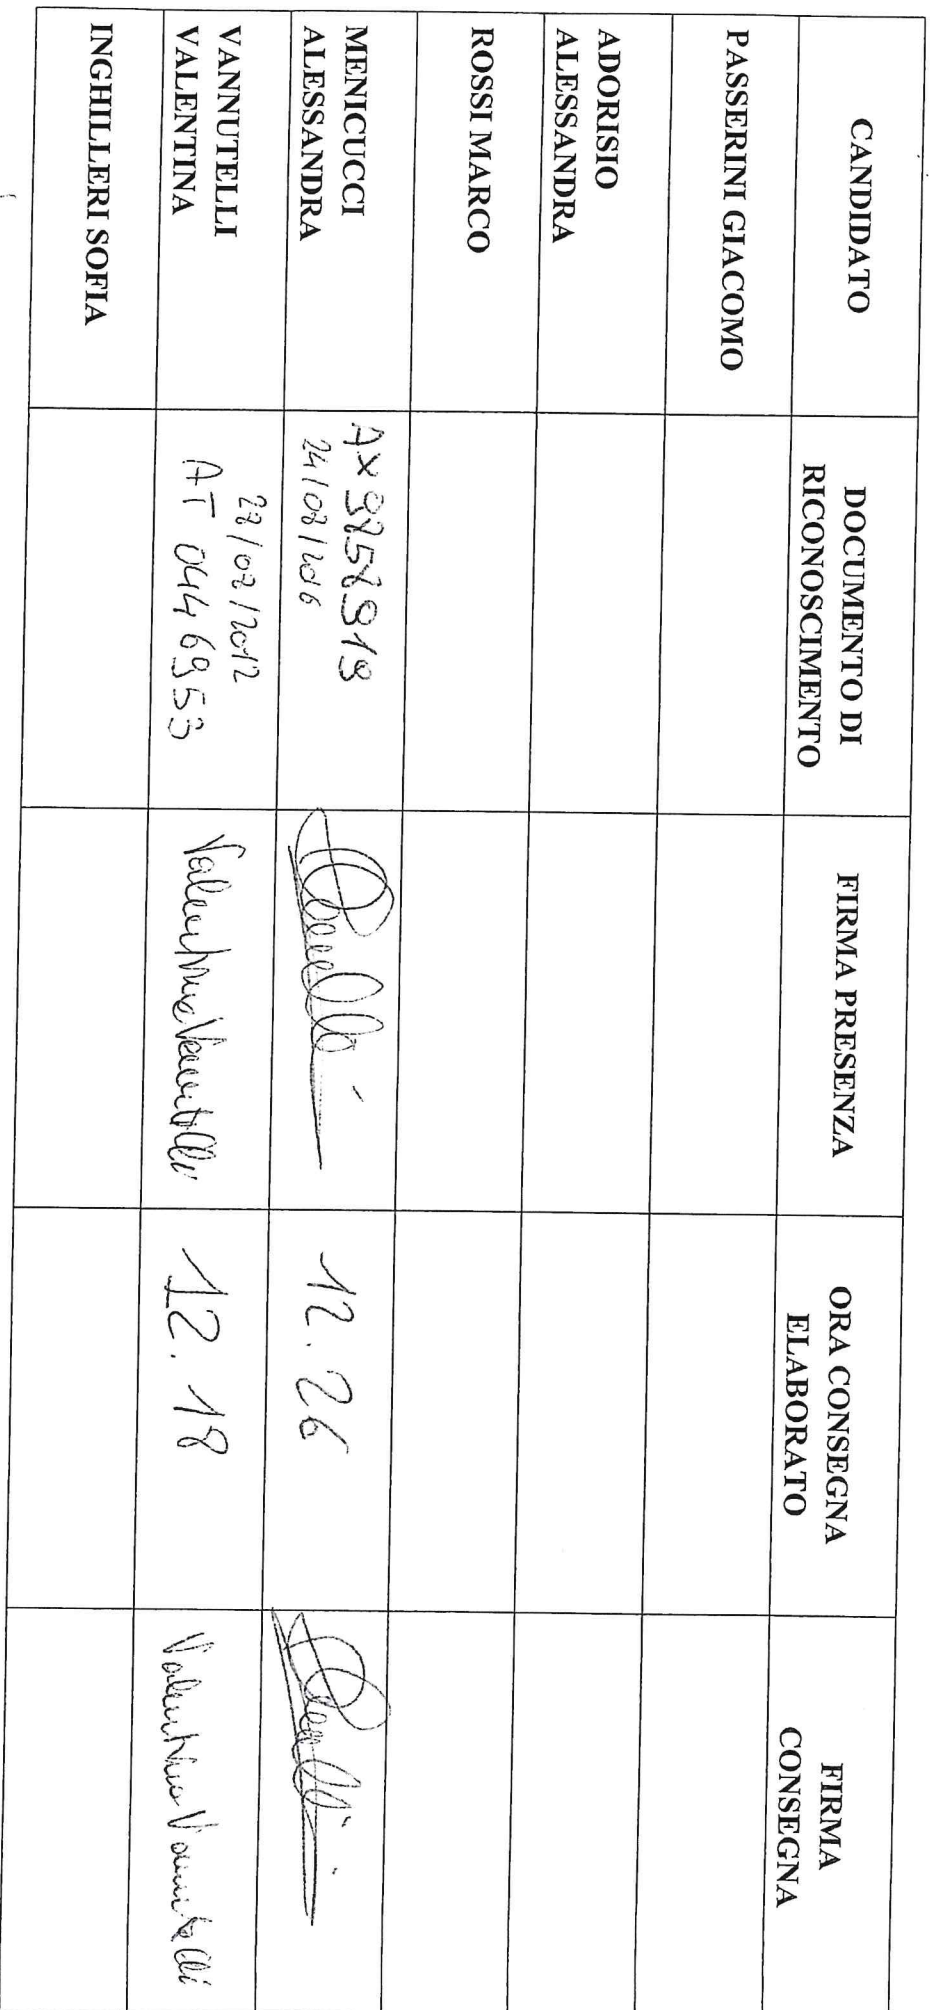 CANDIDATO
DOCUMENTO DI
RICONOSCIMENTO
FIRMA PRESENZA
ORA CONSEGNA
ELABORATO
FIRMA
CONSEGNA
PASSERINI GIACOMO
ADORISIO
ALESSANDRA
ROSSI MARCO
MENICUCCI
ALESSANDRA
24/08/2016
12.26
VANNUTELLI
VALENTINA
AT 0446953
Valentina Vannutelli
12.18
Valentina Vannutelli
INGHILLERI SOFIA